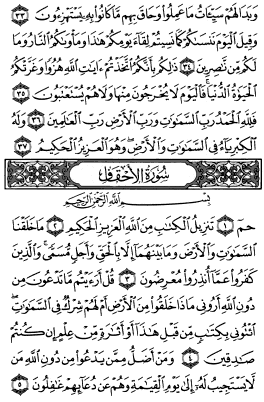 وَبَدَا لَهُمْ سَيِّئَاتُ مَا عَمِلُوا وَحَاقَ بِهِم مَّا كَانُوا بِهِ يَسْتَهْزِءُونَ ٣٣
وَقِيلَ الْيَوْمَ نَنسَاكُمْ كَمَا نَسِيتُمْ لِقَاءَ يَوْمِكُمْ هَٰذَا وَمَأْوَاكُمُ النَّارُ وَمَا
لَكُم مِّن نَّاصِرِينَ ٣٤ ذَٰلِكُم بِأَنَّكُمُ اتَّخَذْتُمْ آيَاتِ اللَّهِ هُزُوًا وَغَرَّتْكُمُ
الْحَيَاةُ الدُّنْيَا فَالْيَوْمَ لَا يُخْرَجُونَ مِنْهَا وَلَا هُمْ يُسْتَعْتَبُونَ ٣٥
فَلِلَّهِ الْحَمْدُ رَبِّ السَّمَاوَاتِ وَرَبِّ الْأَرْضِ رَبِّ الْعَالَمِينَ ٣٦ وَلَهُ
الْكِبْرِيَاءُ فِي السَّمَاوَاتِ وَالْأَرْضِ وَهُوَ الْعَزِيزُ الْحَكِيمُ ٣٧
سُورَةُ الْأَحْقَافِ
بِسْمِ اللَّهِ الرَّحْمَٰنِ الرَّحِيمِ
حم ١ تَنزِيلُ الْكِتَابِ مِنَ اللَّهِ الْعَزِيزِ الْحَكِيمِ ٢ مَا خَلَقْنَا
السَّمَاوَاتِ وَالْأَرْضَ وَمَا بَيْنَهُمَا إِلَّا بِالْحَقِّ وَأَجَلٍ مُّسَمًّى وَالَّذِينَ
كَفَرُوا عَمَّا أُنذِرُوا مُعْرِضُونَ ٣ قُلْ أَرَأَيْتُم مَّا تَدْعُونَ مِن
دُونِ اللَّهِ أَرُونِي مَاذَا خَلَقُوا مِنَ الْأَرْضِ أَمْ لَهُمْ شِرْكٌ فِي السَّمَاوَاتِ
ائْتُونِي بِكِتَابٍ مِّن قَبْلِ هَٰذَا أَوْ أَثَارَةٍ مِّنْ عِلْمٍ إِن كُنتُمْ
صَادِقِينَ ٤ وَمَنْ أَضَلُّ مِمَّن يَدْعُو مِن دُونِ اللَّهِ مَن
لَّا يَسْتَجِيبُ لَهُ إِلَىٰ يَوْمِ الْقِيَامَةِ وَهُمْ عَن دُعَائِهِمْ غَافِلُونَ ٥